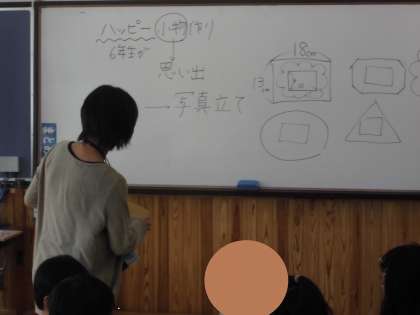 ハッピー小物作り
6年生が
思い出
→写真立て
18cm
13cm